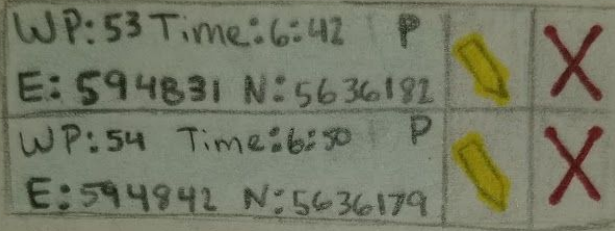 WP:53 Time:6:42 P
E:594831 N:5636182
WP:54 Time:6:50 P
E:594842 N:5636179